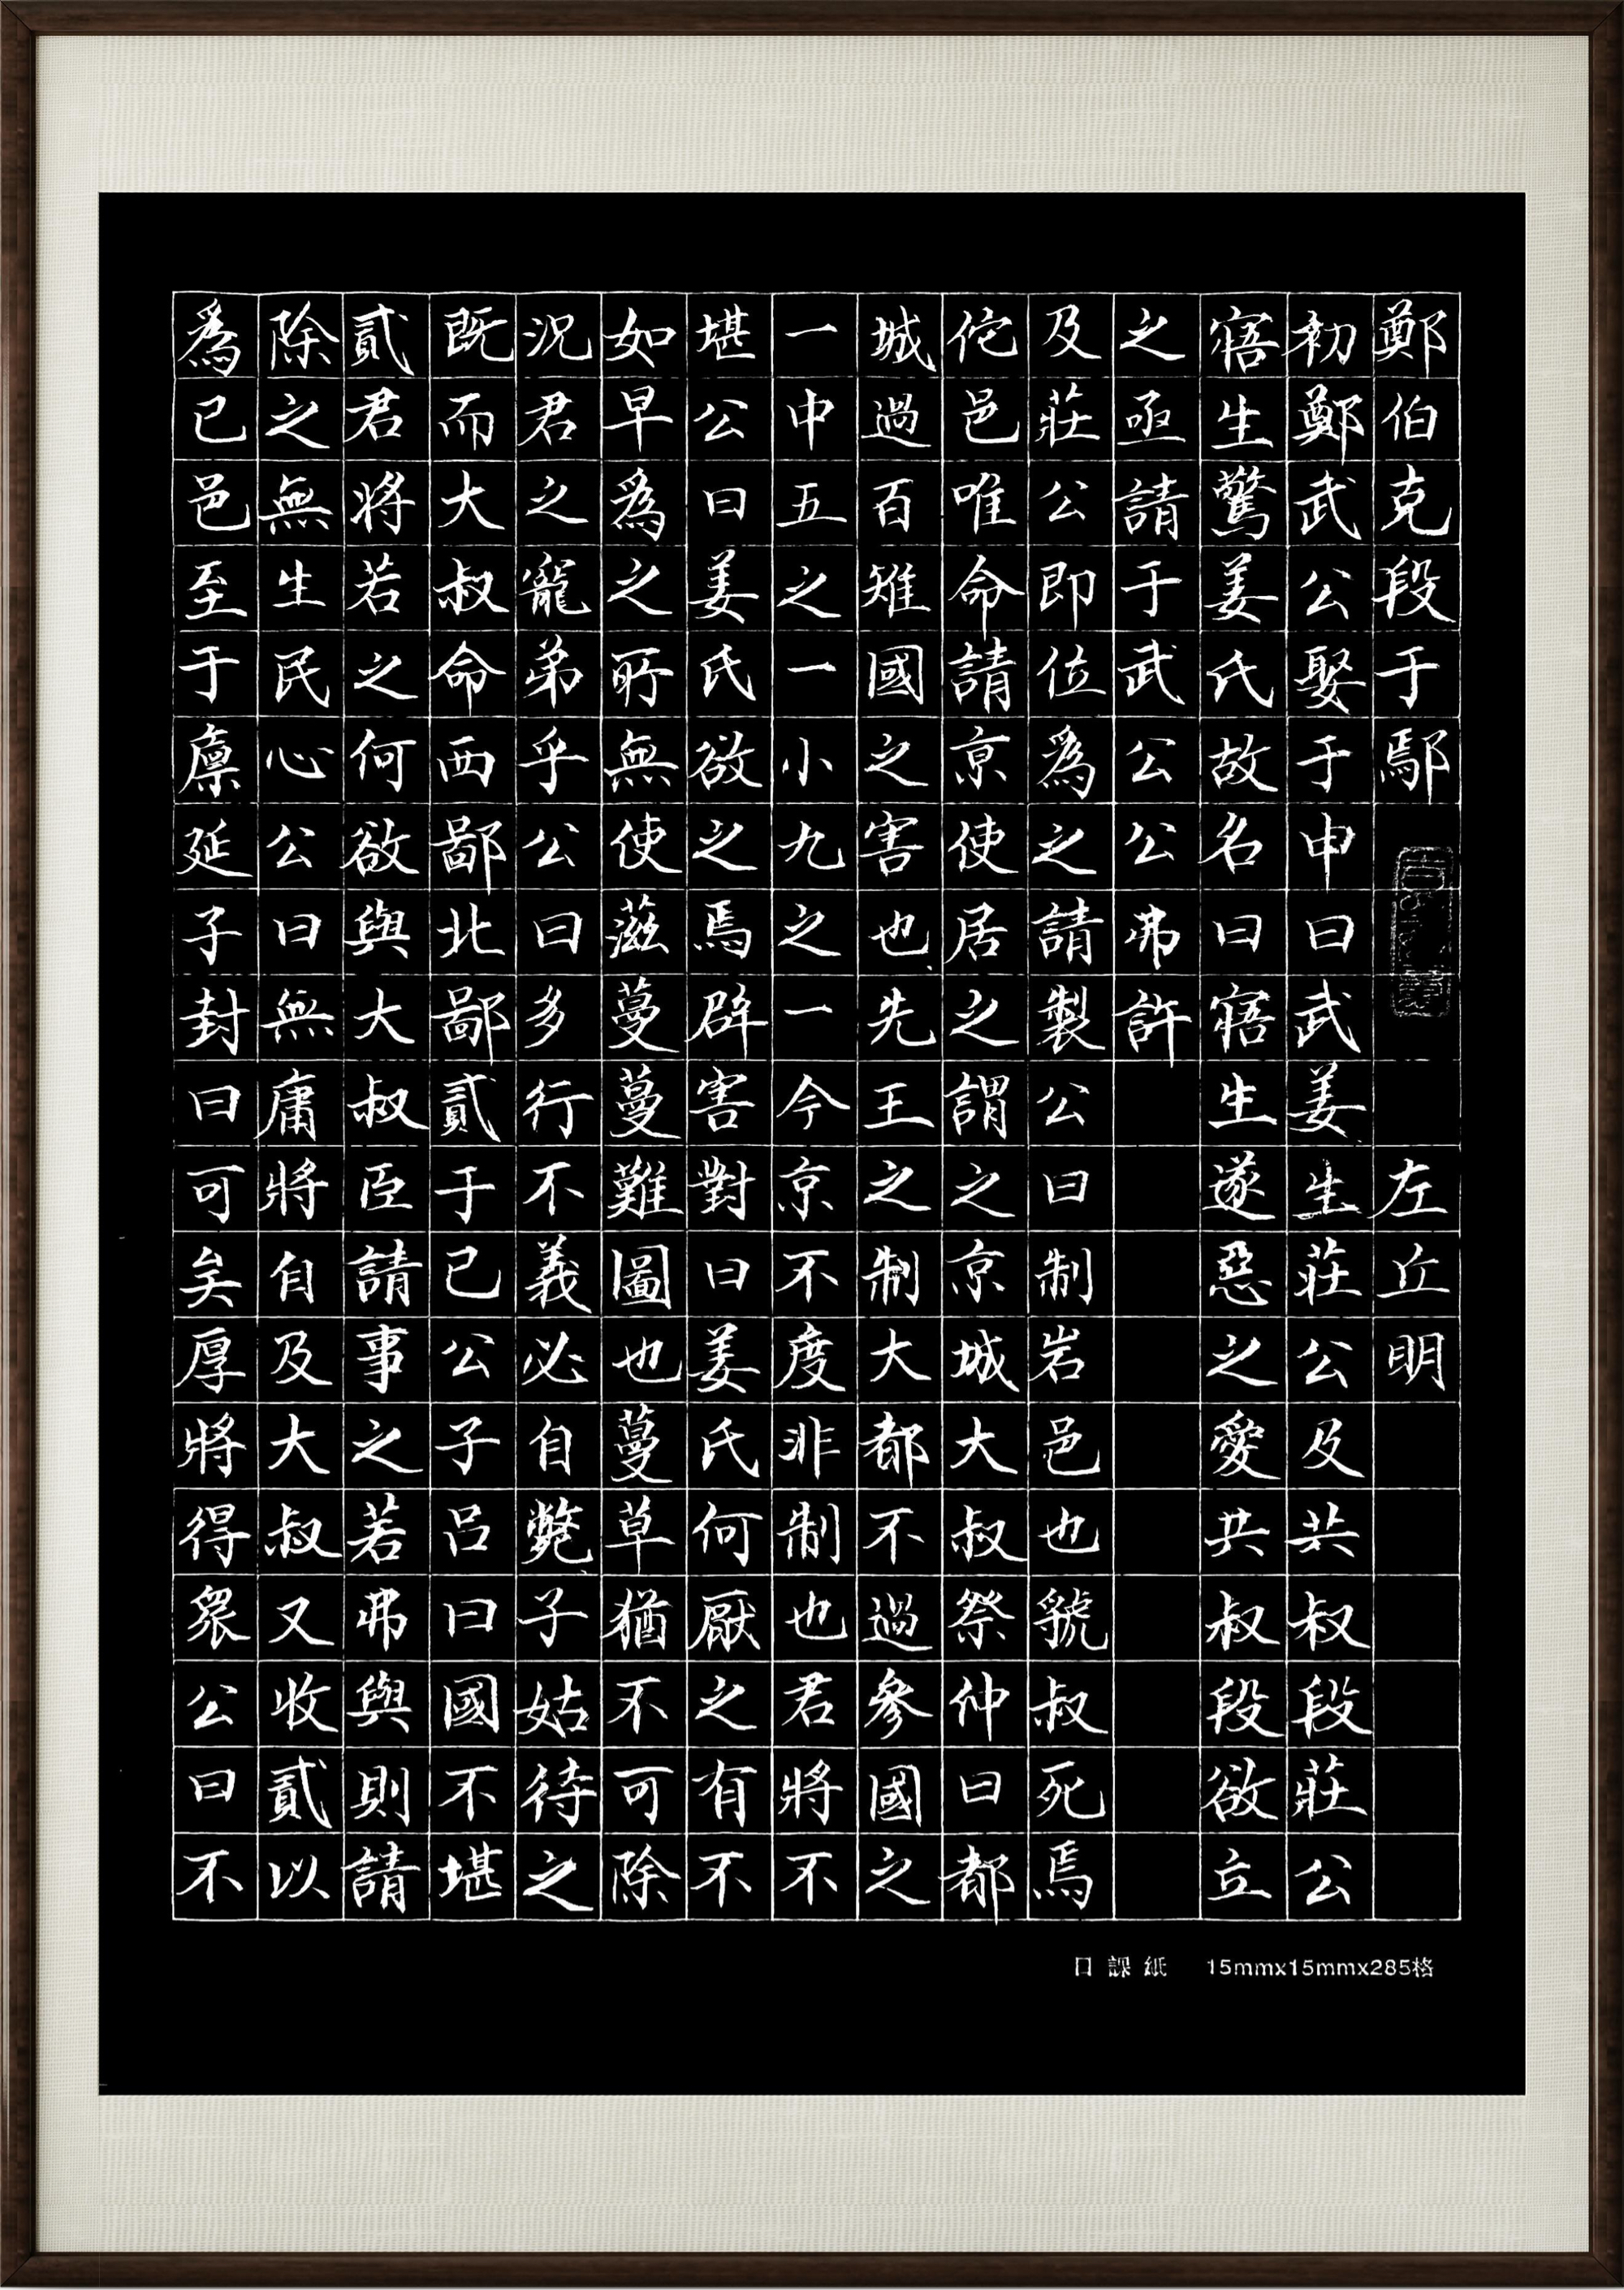 鄭伯克段于鄢 左丘明
初鄭武公娶于申曰武姜生莊公及共叔段莊公
寤生驚姜氏故名曰寤生遂惡之愛共叔段欲立
之亟請于武公公弗許
及莊公即位爲之請製公曰制岩邑也虢叔死焉
佗邑唯命請京使居之謂之京城大叔祭仲曰都
城過百雉國之害也先王之制大都不過參國之
一中五之一小九之一今京不度非制也君將不
堪公曰姜氏欲之焉辟害對曰姜氏何厭之有不
如早爲之所無使滋蔓蔓難圖也蔓草猶不可除
況君之寵弟乎公曰多行不義必自斃子姑待之
既而大叔命西鄙北鄙貳于已公子呂曰國不堪
貳君將若之何欲與大叔臣請事之若弗與則請
除之無生民心公曰無庸將自及大叔又收貳以
爲已邑至于廩延子封曰可矣厚將得眾公曰不
日課紙 15mmx15mmx285格